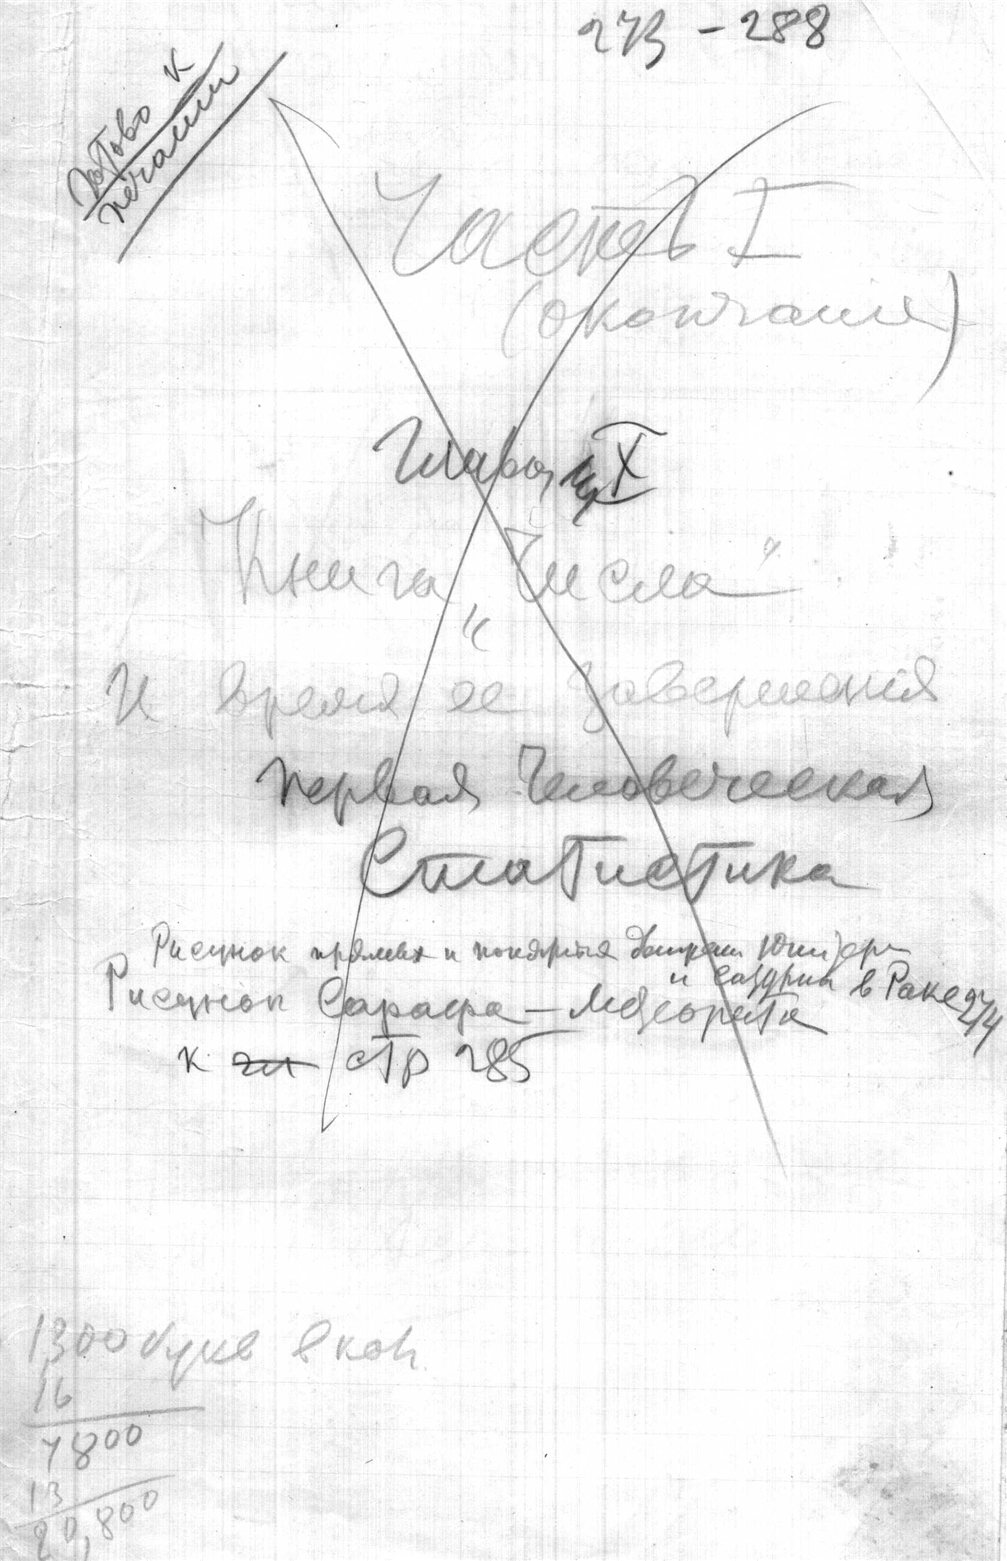 273 - 288
Готово к
печати
Часть I
(окончание)
Глава X
Книга „Числа"
и время ее завершения
Первая Человеческая
Статистика
Рисунок прямых и попятных Юпитера
и в Раке 274
Рисунок Сарафа – Метеорита
к гл стр 285
1300 букв в кол.
16
7800
13
20,800